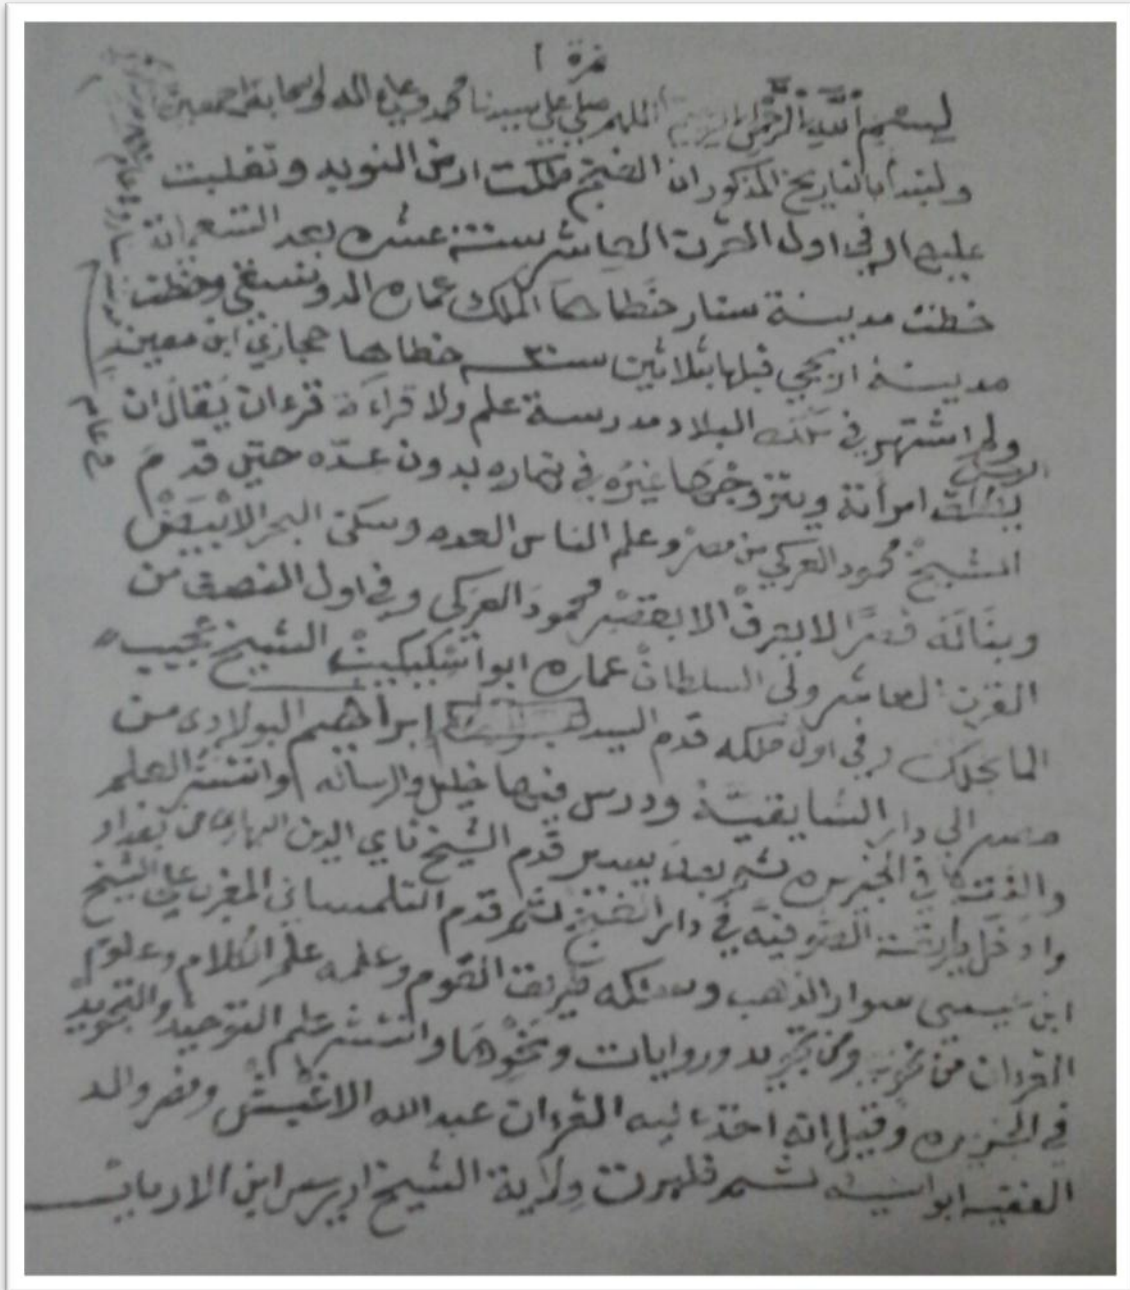 نمرة ١
بسم الله الرحمن الرحيم اللهم صلي علي سيدنا محمد وعلي اله واصحابه اجمعين
ولنبدأ بالتاريخ المذكور ان الفنج ملكت ارض النوبه وتغلبت
عليها في اول القرن العاشر سنة عشره بعد التسعماية
خطت مدينة سنار خطاها الملك عماره الدونسقي وخطت
مدينة اربجي قبلها بثلاثين سنة خطاها حجازي ابن معين
ولم اشتهر في تلك البلاد مدرسة علم ولا قراءة قرءان يقال ان
الرجل
يطلق امرأته ويتزوجها غيره في نهاره بدون عده حتي قدم
الشيخ محمود العركي من مصر وعلم الناس العده وسكن البحر الابيض
وبنا له قصرا الا يعرف الا بقصر محمود العركي وفي اول النصف من
القرن العاشر ولي السلطان عماره ابو اسكيكين الشيخ عجيب
المانجلك وفي اول ملكه قدم السيد ابراهيم البولادي من
مصر الي دار الشايقية ودرس فيها خليل والرساله وانتشر العلم
والفقه في الجزيره ثم بعد يسير قدم الشيخ تاج الدين البهاري من بغداد
وادخل طريقة الصوفية في دار الفنج ثم قدم التلمساني المغربي علي الشيخ
ابن عيسي سوار الذهب وسلكه طريق القوم وعلمه علم الكلام وعلوم
القرءان من تجويد وروايات ونحوها وانتشر علم التوحيد والتجويد
في الجزيره وقيل انه اخذ عليه القرءان عبدالله الاغبش ونصر والد
الفقيه ابو سنينه ثم ظهرت ولاية الشيخ ادريس ابن الارباب